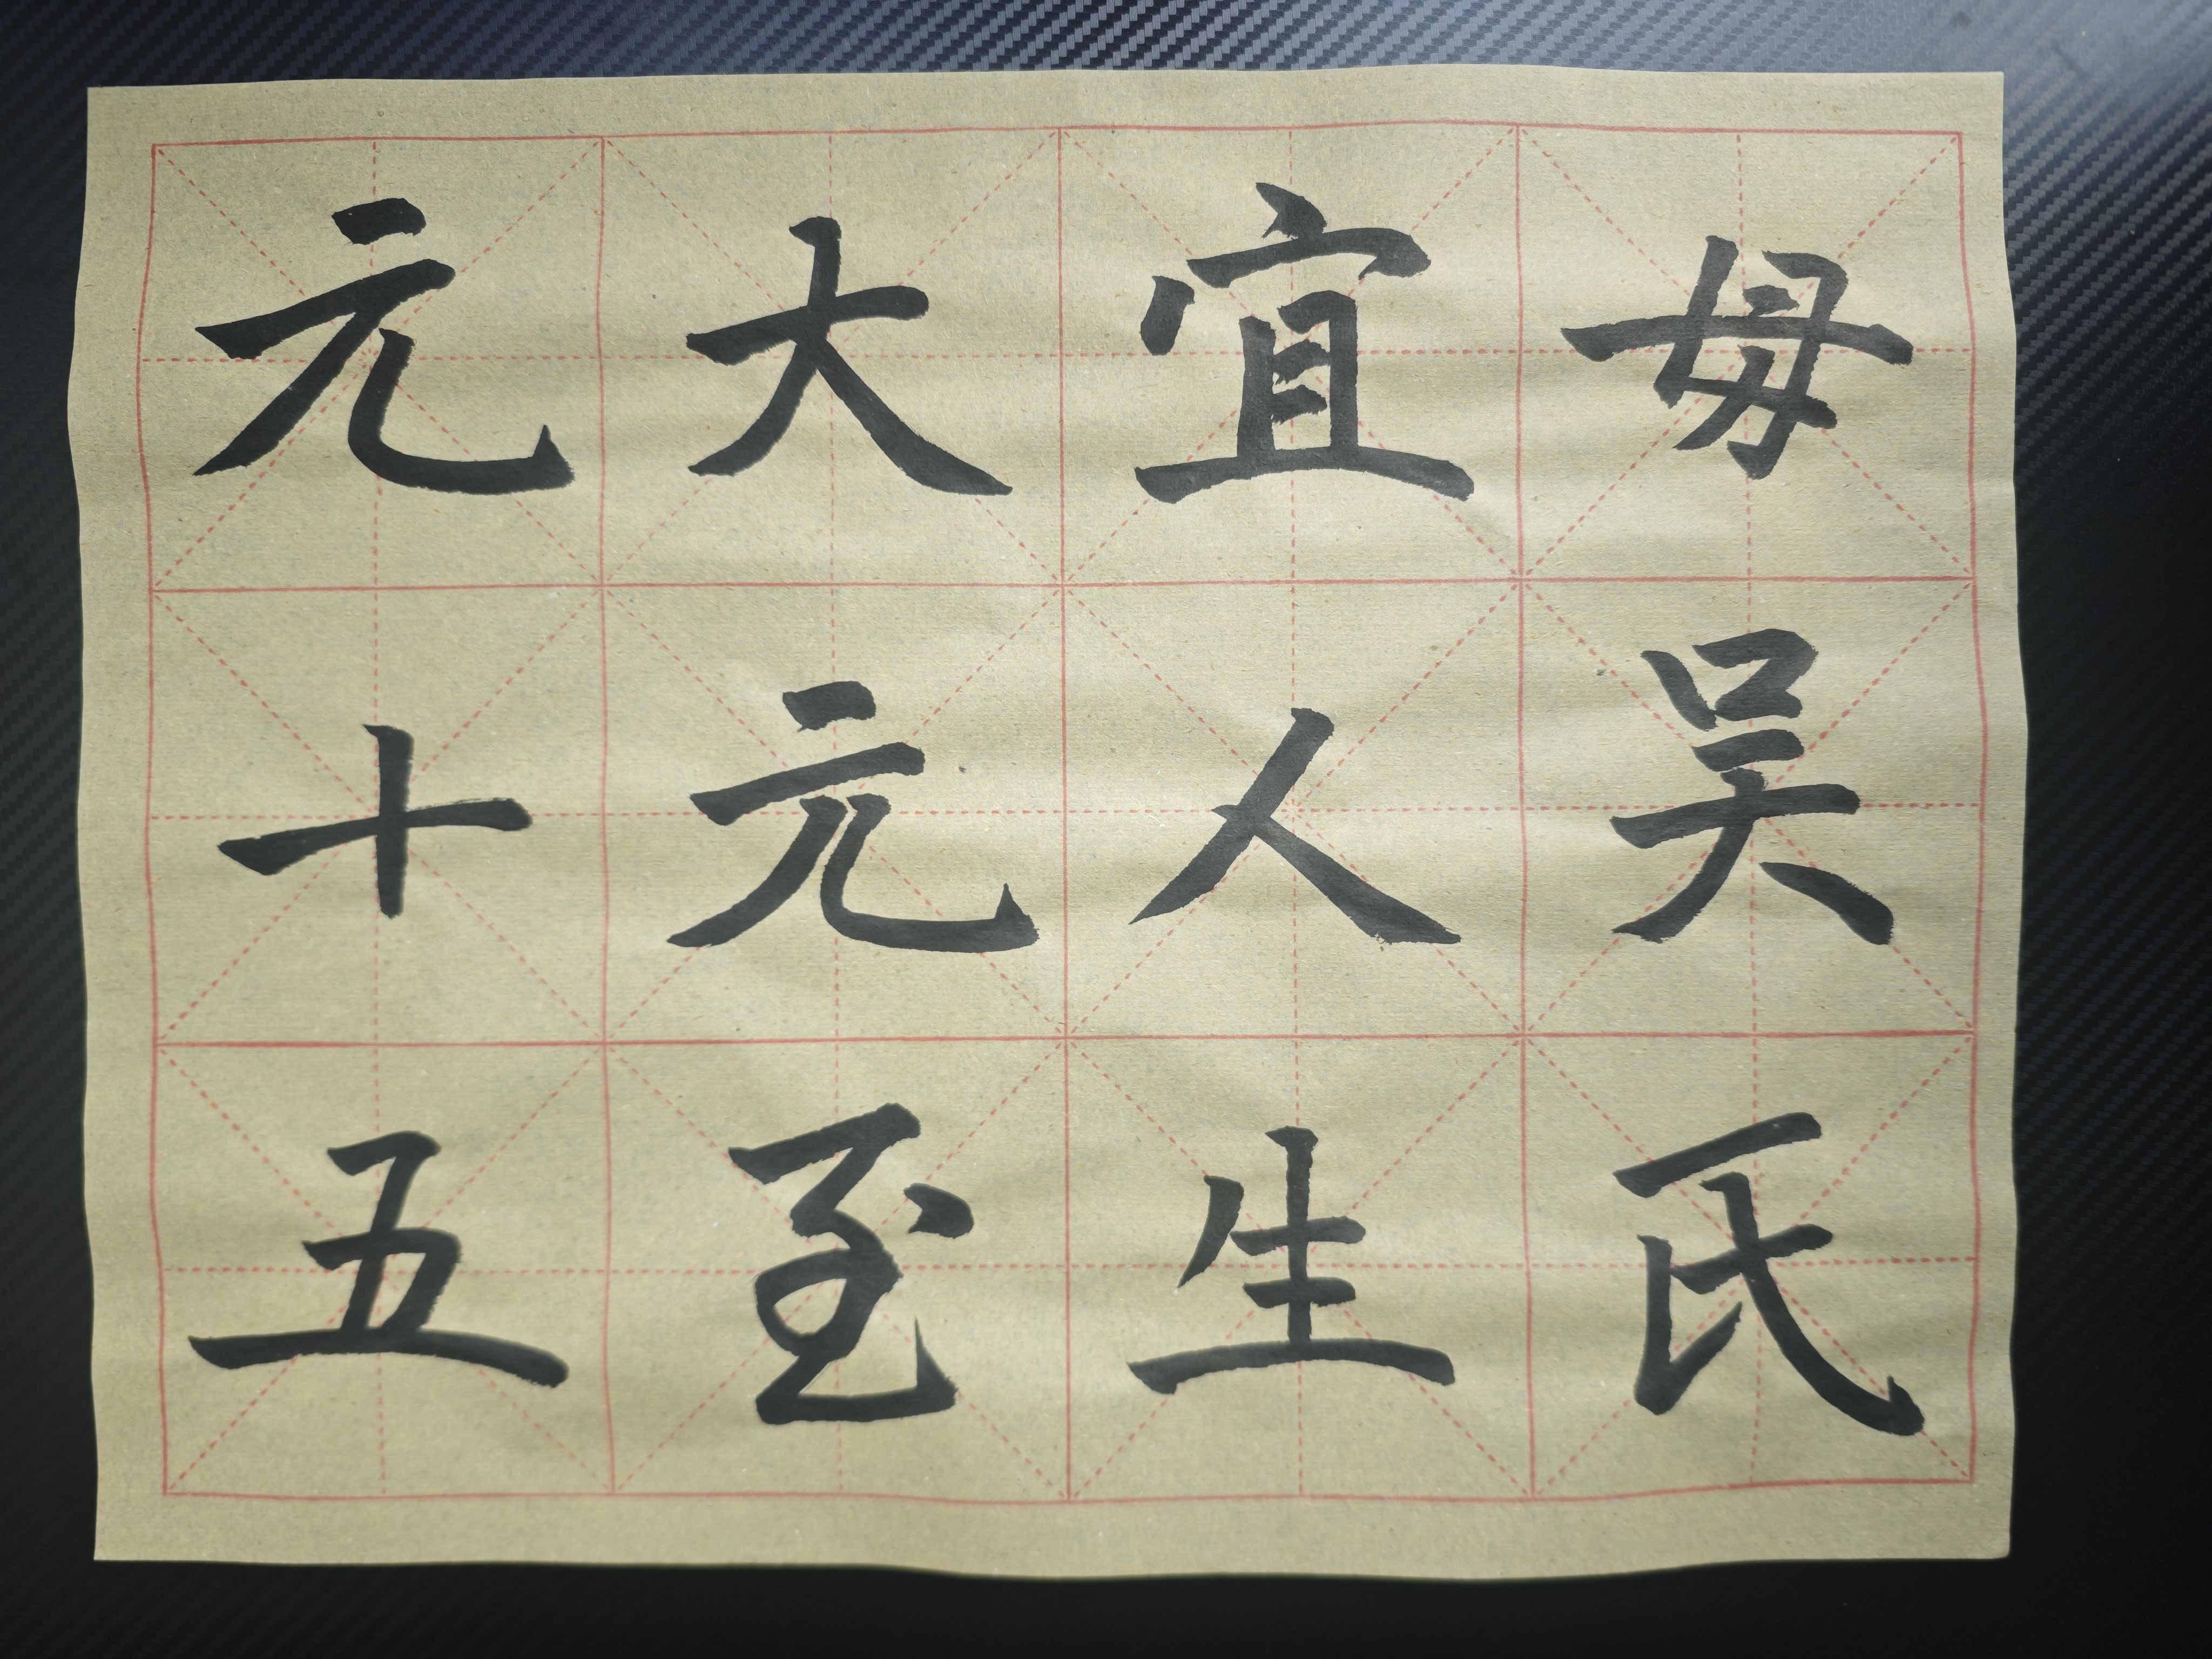 母吴氏
宜人生
大元至
元十五